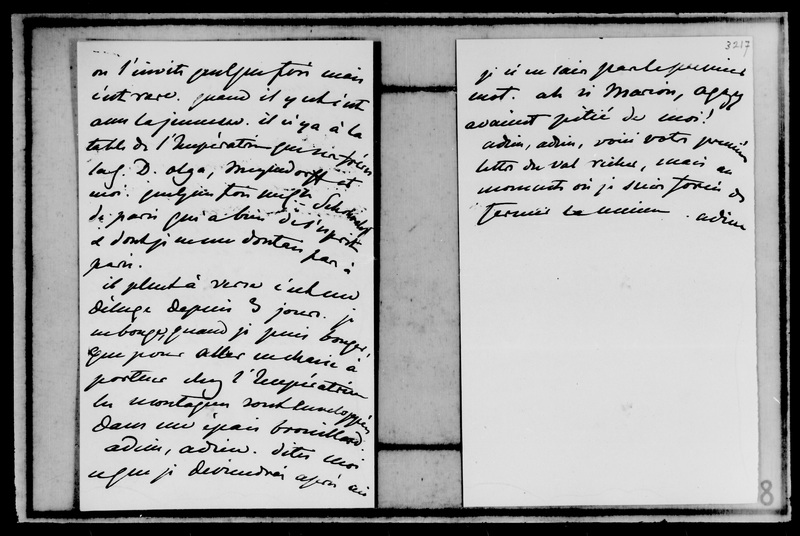 on l'invite quelque fois mais
c'est rare. quand il y est c'est
avec la jeunesse. il n'y a à la
table de l'Impératrice que son frère
la g. D. olga, Meyendorff et
moi. quelque fois
de paris qui a bien de l'esprit
et dont je ne me doutais pas à
paris.
il pleut à verse c'est un
déluge depuis 3 jours. je
ne bouge, quand je puis bouger,
que pour aller en chaise à
porteur chez l'Impératrice
les montagnes sont enveloppées
dans un épais brouillard.
adieu, adieu. dites moi
ce que je deviendrai après ceci
3217
je n'en sais pas le premier
mot. ah si Marion, aggy
avaient pitié de moi!
adieu, adieu, voici votre première
lettre du val richer, mais au
moment où je suis forcée de
fermer la mienne. adieu
8